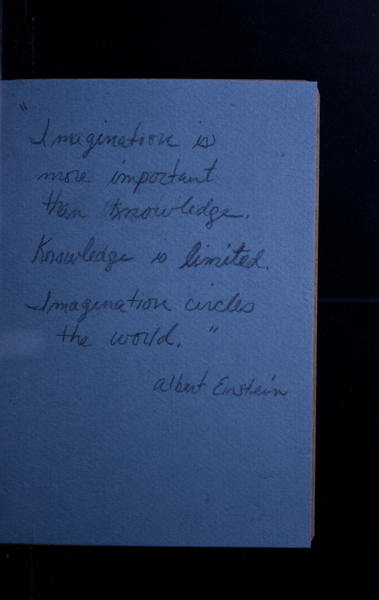 "Imagination is
more important
than knowledge.
Knowledge is limited.
Imagination circles
the world."
Albert Einstein